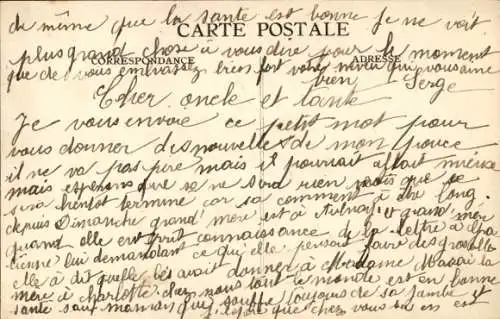 de même que la sante est bonne je ne voit
CARTE POSTALE
plus grand chose a vous dire pour le moment
CORRESPONDANCE ADRESSE
que de vous embrassez bien fort votre neveu qui vous aime
bien Serge
Cher oncle et tante
Je vous envoie ce petit mot pour
vous donner des nouvelles de mon pouce
il ne va pas pire mais il pourrait allait mieux
mais esperons que sa ne sera rien et que ce
sera bientot termine car sa comment a etre long
depuis Dimanche grand mere est a et grand mere
quand elle eut connaissance de la lettre a
lui demandant ce qu'elle pensait faire des groseilles
elle a dit qu'elle les avait donner a Madame la
mere a Charlotte chez nous tout le monde est en bonne
sante sauf maman qui souffre toujours de sa jambe et
j'espere que chez vous il en est